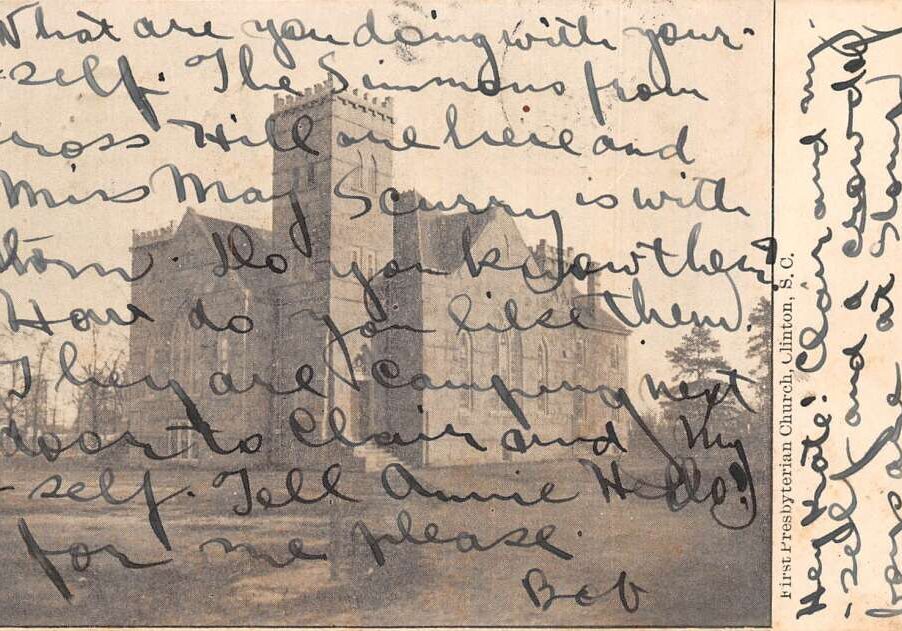 What are you doing with your-
-self. The Simmons from
ross Hill are here and
Miss May Scurry is with
them. Do you know them?
How do you like them.
They are camping next
door to Clair and my
-self. Tell Annie Hello!
for me please.
Bob
First Presbyterian Church, Clinton, S. C.
Hey Kate! Clair and my
-self and a crowd of
boys are at